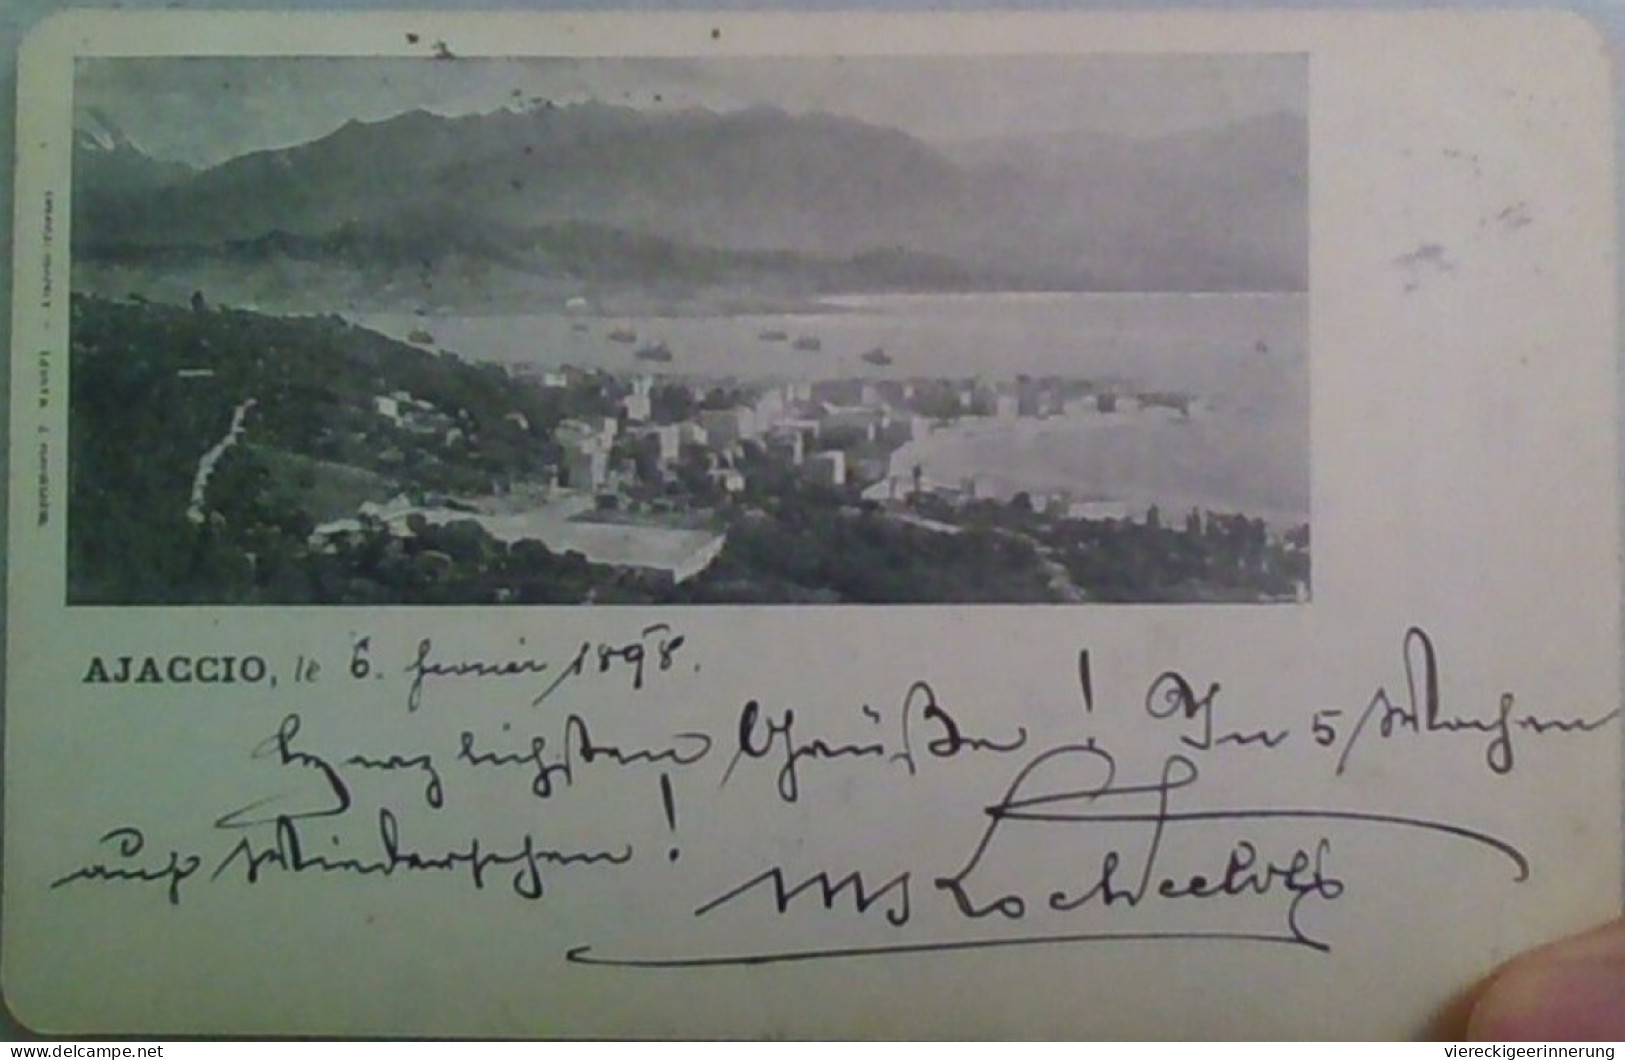 AJACCIO, le 6. fevrier 1898.
Herzlichsten Grüße! In 5 Wochen
auf Wiedersehen!
www.delcampe.net
viereckigeerinnerung